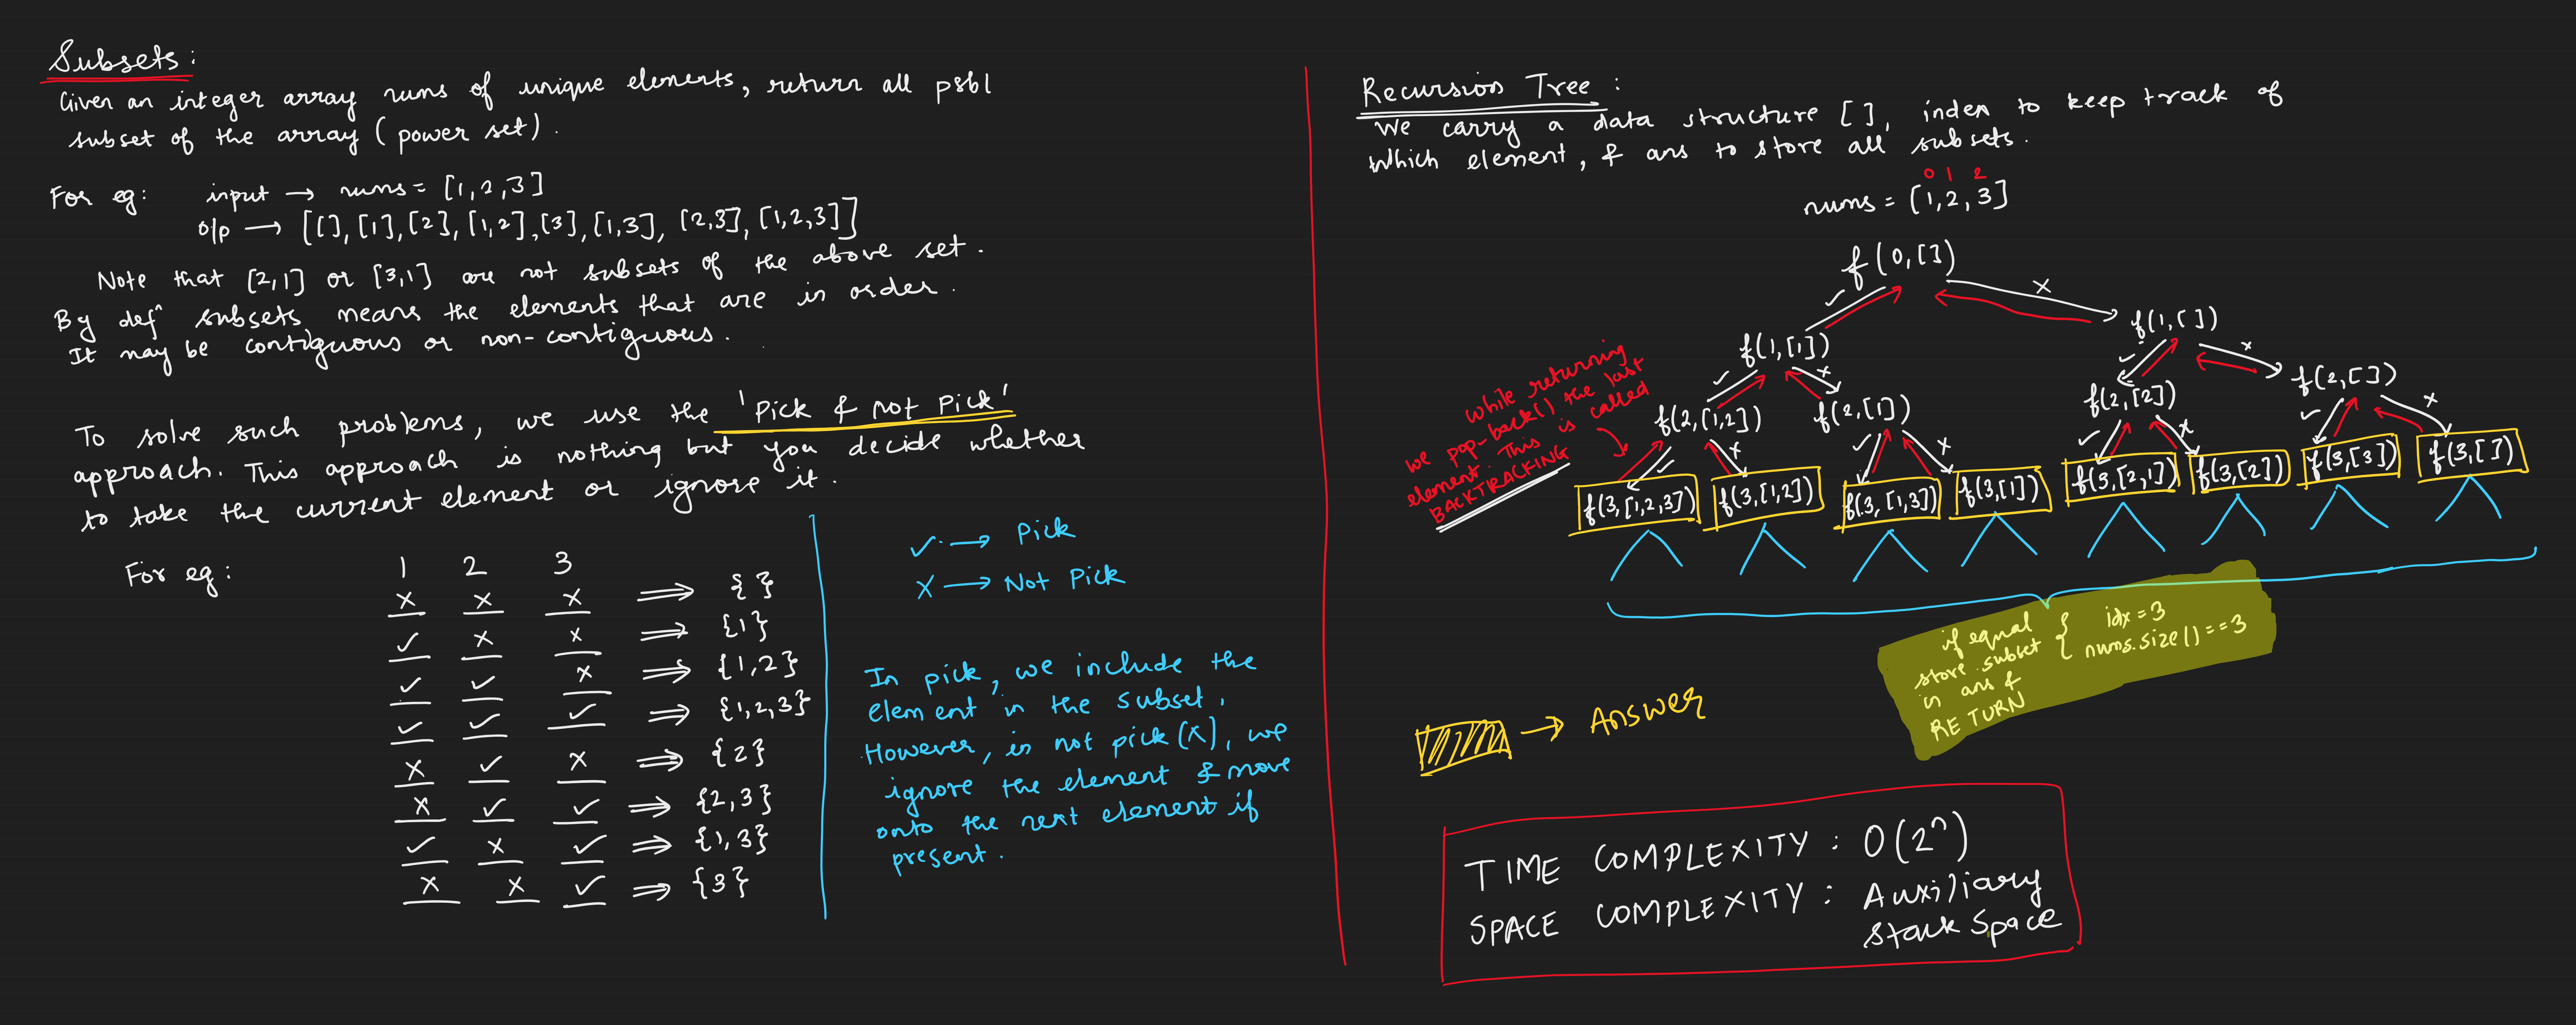 Subsets:
Given an integer array nums of unique elements, return all psbl
subset of the array (power set).
For eg: input → nums = [1,2,3]
o/p → [[], [1], [2], [1,2], [3], [1,3], [2,3], [1,2,3]]
Note that [2,1] or [3,1] are not subsets of the above set.
By defⁿ subsets means the elements that are in order.
It may be contiguous or non-contiguous.
To solve such problems, we use the 'Pick & not Pick'
approach. This approach is nothing but you decide whether
to take the current element or ignore it.
For eg: 1 2 3
X X X ⟹ { }
✓ X X ⟹ {1}
✓ ✓ X ⟹ {1,2}
✓ ✓ ✓ ⟹ {1,2,3}
X ✓ X ⟹ {2}
X ✓ ✓ ⟹ {2,3}
✓ X ✓ ⟹ {1,3}
X X ✓ ⟹ {3}
✓ → Pick
X → Not Pick
In pick, we include the
element in the subset.
However, in not pick(X), we
ignore the element & move
onto the next element if
present.
Recursion Tree:
We carry a data structure [], index to keep track of
which element, & ans to store all subsets.
0 1 2
nums = [1,2,3]
f(0,[])
✓ X
f(1,[1]) f(1,[])
✓ X ✓ X
f(2,[1,2]) f(2,[1]) f(2,[2]) f(2,[])
✓ X ✓ X ✓ X ✓ X
f(3,[1,2,3]) f(3,[1,2]) f(3,[1,3]) f(3,[1]) f(3,[2,1]) f(3,[2]) f(3,[3]) f(3,[])
while returning
we pop-back() the last
element. This is called
BACKTRACKING
if equal { idx = 3
store subset { nums.size() == 3
in ans &
RETURN
→ Answer
TIME COMPLEXITY : O(2ⁿ)
SPACE COMPLEXITY : Auxiliary
Stack Space